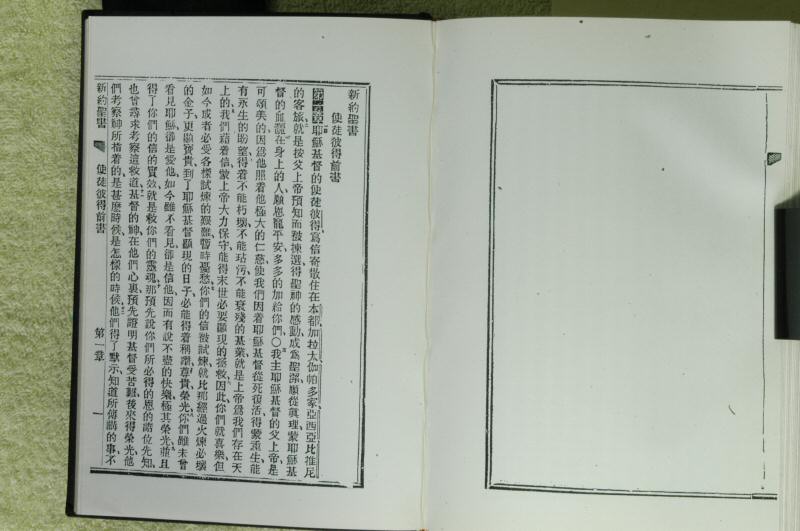 新約聖書
使徒彼得前書
第一章耶穌基督的使徒彼得、爲信寄散住在本都、加拉太、伽帕多家、亞西亞、比推尼
的客旅、就是按父上帝預知而被揀選、得聖神的感動、成爲聖潔、順從眞理、蒙耶穌基
督的血灑在身上的人、願恩寵平安多多的加給你們○我主耶穌基督的父上帝是
可頌美的、因爲他照着他極大的仁慈、使我們因着耶穌基督從死復活、得蒙重生、能
有永生的盼望、得着不能朽壞、不能玷污、不能衰殘的基業、就是上帝爲我們存在天
上的、我們藉着信、蒙上帝大力保守、能得末世必要顯現的拯救、因此你們就喜樂、但
如今或者必受各樣試煉的艱難、暫時憂愁、你們的信被試煉、就比那經過火煉必壞
的金子、更顯寶貴、到了耶穌基督顯現的日子、必能得着稱讚、尊貴、榮光、你們雖未曾
看見耶穌、卻是愛他、如今雖不看見、卻是信他、因而有說不盡的快樂、極其榮光、並且
得了你們的信的實效、就是救你們的靈魂、那預先說你們所必得的恩的諸位先知、
也曾尋求考察這救道、基督的神、在他們心裏、預先證明基督受苦難、後來得榮光、他
們考察神所指着的、是甚麽時候、是怎樣的時候、他們得了默示、知道所傳講的事、不
新約聖書 使徒彼得前書 第一章 一